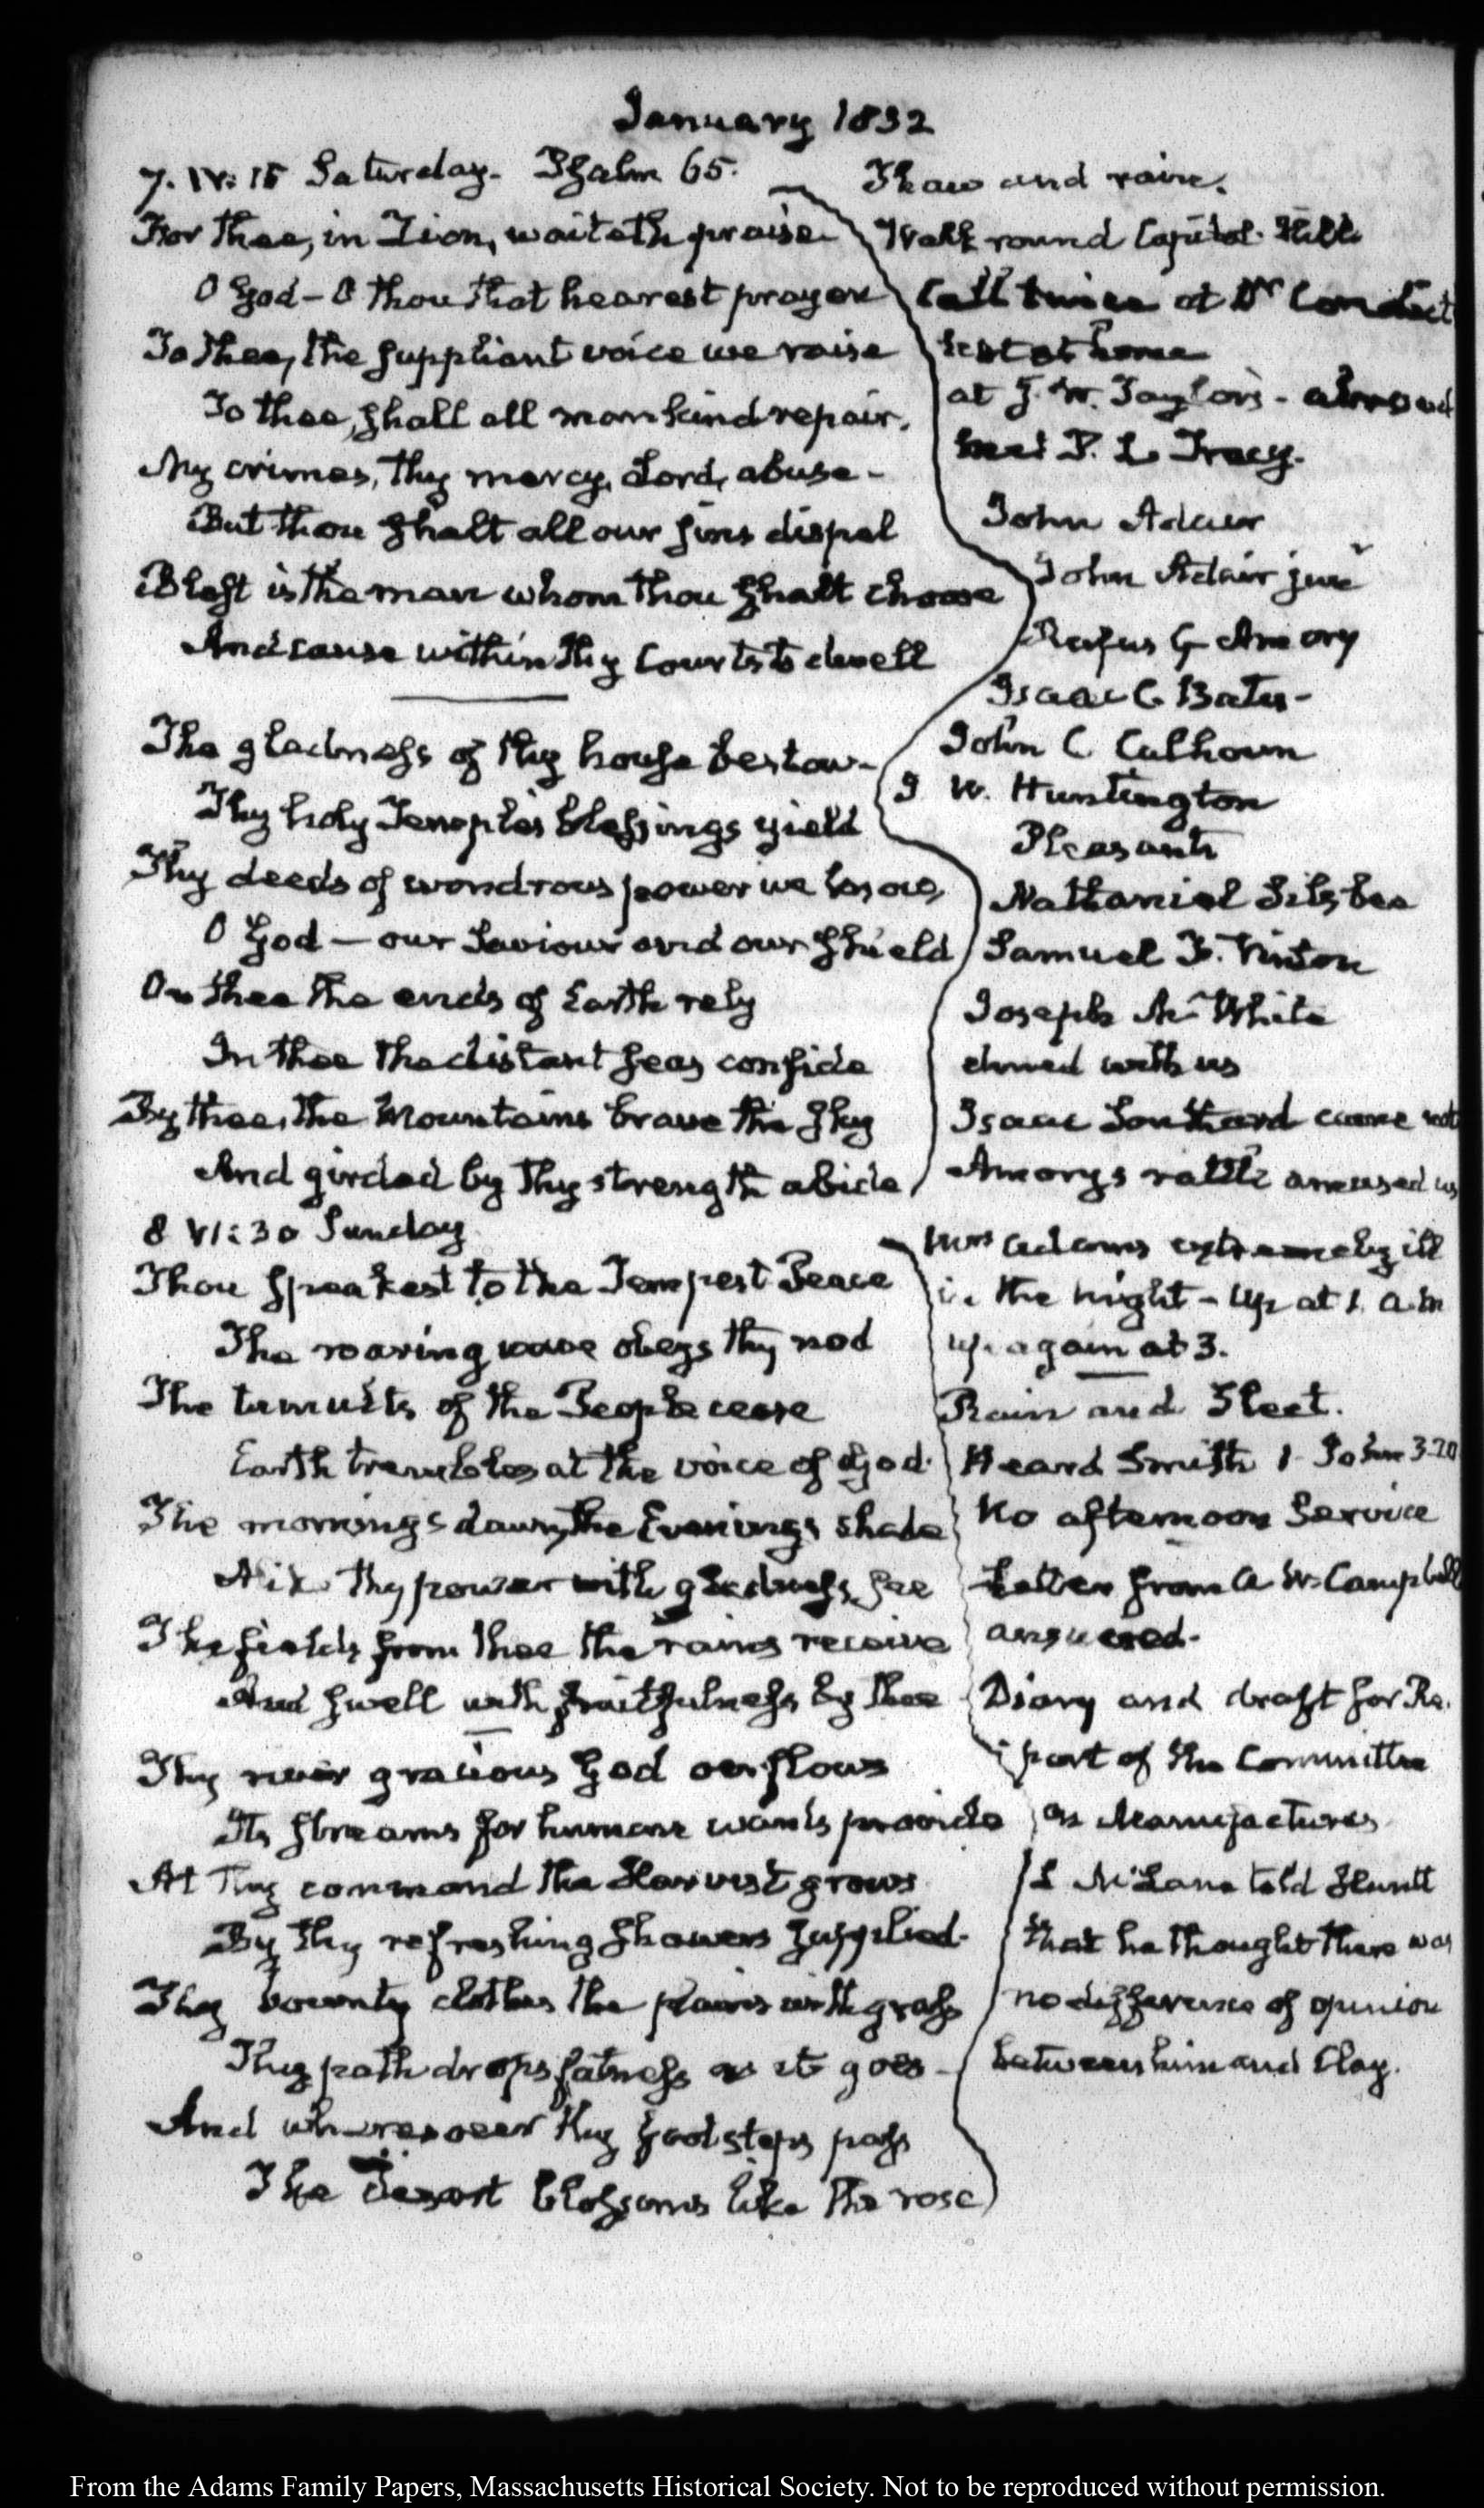 January 1832
7. IV: 15 Saturday. Psalm 65.
For thee, in Zion, waiteth praise
O God – O thou that hearest prayer
To thee, the suppliant voice we raise
To thee, shall all mankind repair.
My crimes, thy mercy, Lord, abuse –
But thou shalt all our sins dispel
Blest is the man whom thou shalt choose
And cause within thy Courts to dwell
The gladness of thy house bestow –
Thy holy Temple's blessings yield
Thy deeds of wondrous power we know
O God – our Saviour and our Shield
On thee the ends of Earth rely
In thee the distant seas confide
By thee, the Mountains brave the sky
And girded by thy strength abide
Thaw and rain.
Walk round Capitol Hill
Call twice at Dr Condict
not at home
at J. W. Taylor's – abroad
met P. L. Tracy.
John Adair
John Adair junr
Rufus G Amory
Isaac C Bates –
John C Calhoun
J W. Huntington
Pleasants
Nathaniel Silsbee
Samuel F. Vinton
Joseph M White
dined with us
Isaac Southard came not
Amory's rattle amused us
8 VI: 30 Sunday
Thou speakest to the Tempest Peace
The roaring wave obeys thy nod
The tumults of the People cease
Earth trembles at the voice of God.
The morning's dawn, the Evening's shade
Mix thy power with gladness see
The fields from thee the rains receive
And swell with fruitfulness by thee
Thy river gracious God overflows
Its streams for human wants provide
At Thy command the Harvest grows
By thy refreshing showers supplied.
Thy bounty clothes the plains with grass
Thy path drops fatness as it goes –
And wheresoe'er thy footsteps pass
The Desert blossoms like the rose
Mrs Adams extremely ill
in the night – Up at 1. a.m
up again at 3.
Rain and Sleet.
Heard Smith 1. John 3.20
No afternoon Service
Letter from A W Campbell
answered.
Diary and draft for Re.
port of the Committee
on Manufactures
L McLane told
that he thought there was
no difference of opinion
between him and Clay.
From the Adams Family Papers, Massachusetts Historical Society. Not to be reproduced without permission.